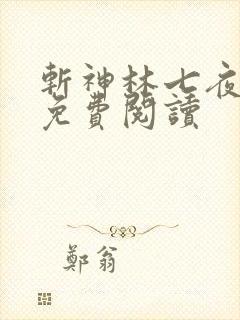 斬神林七夜
免費閱讀
鄭翁